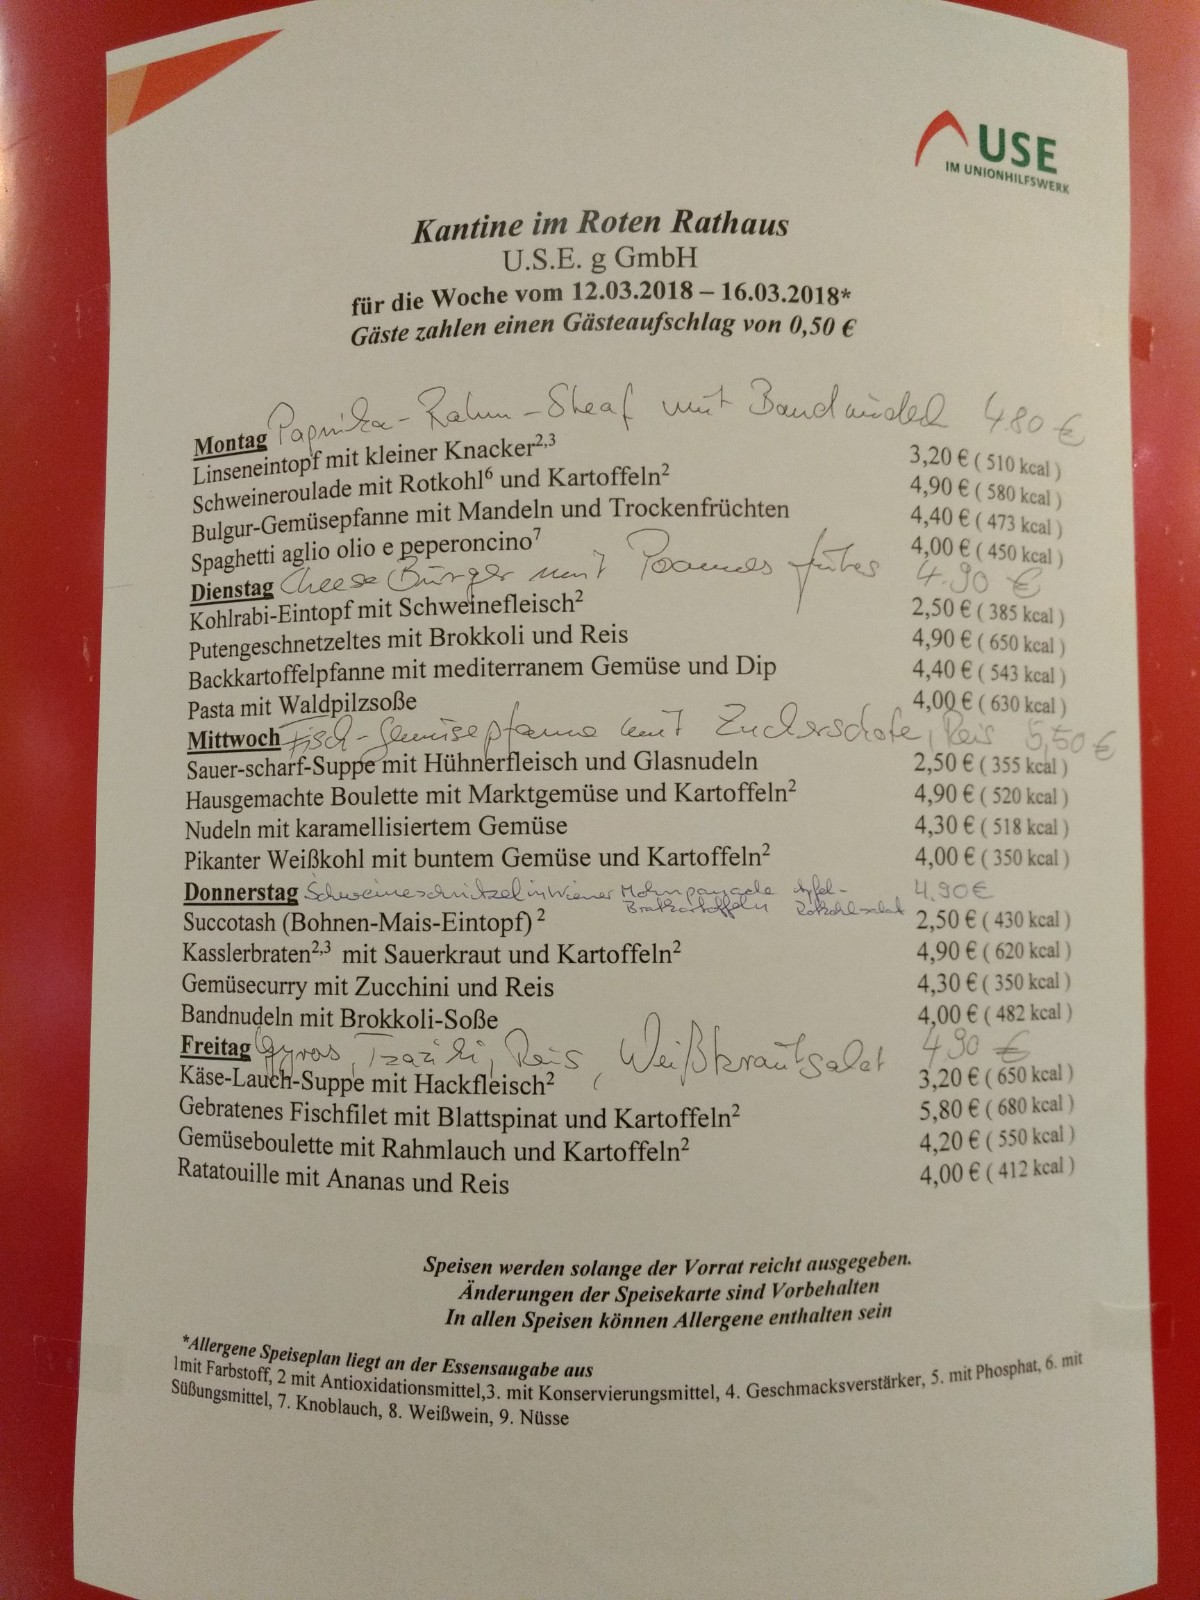 USE
IM UNIONHILFSWERK
Kantine im Roten Rathaus
U.S.E. g GmbH
für die Woche vom 12.03.2018 – 16.03.2018*
Gäste zahlen einen Gästeaufschlag von 0,50 €
Montag Paprika-Rahm-Steak mit Bandnudeln 4.80 €
Linseneintopf mit kleiner Knacker2,3 3,20 € ( 510 kcal )
Schweineroulade mit Rotkohl6 und Kartoffeln2 4,90 € ( 580 kcal )
Bulgur-Gemüsepfanne mit Mandeln und Trockenfrüchten 4,40 € ( 473 kcal )
Spaghetti aglio olio e peperoncino7 4,00 € ( 450 kcal )
Dienstag Cheese Burger mit Pommes frites 4.90 €
Kohlrabi-Eintopf mit Schweinefleisch2 2,50 € ( 385 kcal )
Putengeschnetzeltes mit Brokkoli und Reis 4,90 € ( 650 kcal )
Backkartoffelpfanne mit mediterranem Gemüse und Dip 4,40 € ( 543 kcal )
Pasta mit Waldpilzsoße 4,00 € ( 630 kcal )
Mittwoch Fisch-Gemüsepfanne mit Zuckerschote, Reis 5,50 €
Sauer-scharf-Suppe mit Hühnerfleisch und Glasnudeln 2,50 € ( 355 kcal )
Hausgemachte Boulette mit Marktgemüse und Kartoffeln2 4,90 € ( 520 kcal )
Nudeln mit karamellisiertem Gemüse 4,30 € ( 518 kcal )
Pikanter Weißkohl mit buntem Gemüse und Kartoffeln2 4,00 € ( 350 kcal )
Donnerstag Schweineschnitzel in Wiener Mohnpanade Apfel- 4.90 €
Bratkartoffeln Rotkohlsalat
Succotash (Bohnen-Mais-Eintopf) 2 2,50 € ( 430 kcal )
Kasslerbraten2,3 mit Sauerkraut und Kartoffeln2 4,90 € ( 620 kcal )
Gemüsecurry mit Zucchini und Reis 4,30 € ( 350 kcal )
Bandnudeln mit Brokkoli-Soße 4,00 € ( 482 kcal )
Freitag Gyros, Tzaziki, Reis, Weißkrautsalat 4,90 €
Käse-Lauch-Suppe mit Hackfleisch2 3,20 € ( 650 kcal )
Gebratenes Fischfilet mit Blattspinat und Kartoffeln2 5,80 € ( 680 kcal )
Gemüseboulette mit Rahmlauch und Kartoffeln2 4,20 € ( 550 kcal )
Ratatouille mit Ananas und Reis 4,00 € ( 412 kcal )
Speisen werden solange der Vorrat reicht ausgegeben.
Änderungen der Speisekarte sind Vorbehalten
In allen Speisen können Allergene enthalten sein
*Allergene Speiseplan liegt an der Essensaugabe aus
1mit Farbstoff, 2 mit Antioxidationsmittel,3. mit Konservierungsmittel, 4. Geschmacksverstärker, 5. mit Phosphat, 6. mit
Süßungsmittel, 7. Knoblauch, 8. Weißwein, 9. Nüsse